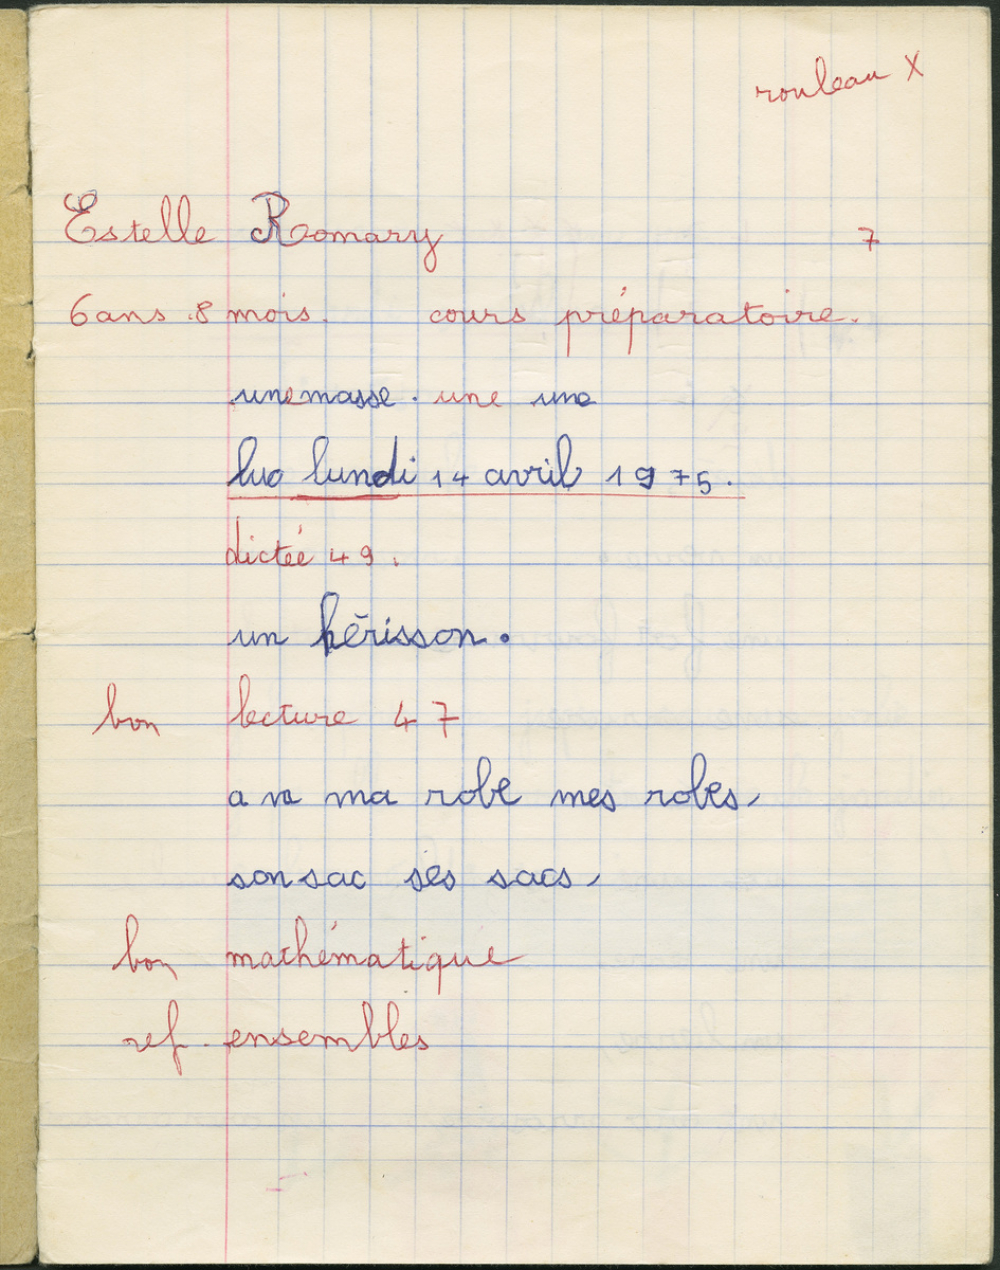 rouleau X
Estelle Romary 7
6 ans 8 mois. cours préparatoire.
une masse. une une
luo lundi 14 avril 1975.
dictée 49.
un hérisson.
bon lecture 47
a ma robe mes robes,
son sac ses sacs,
bon mathématique
ref. ensembles